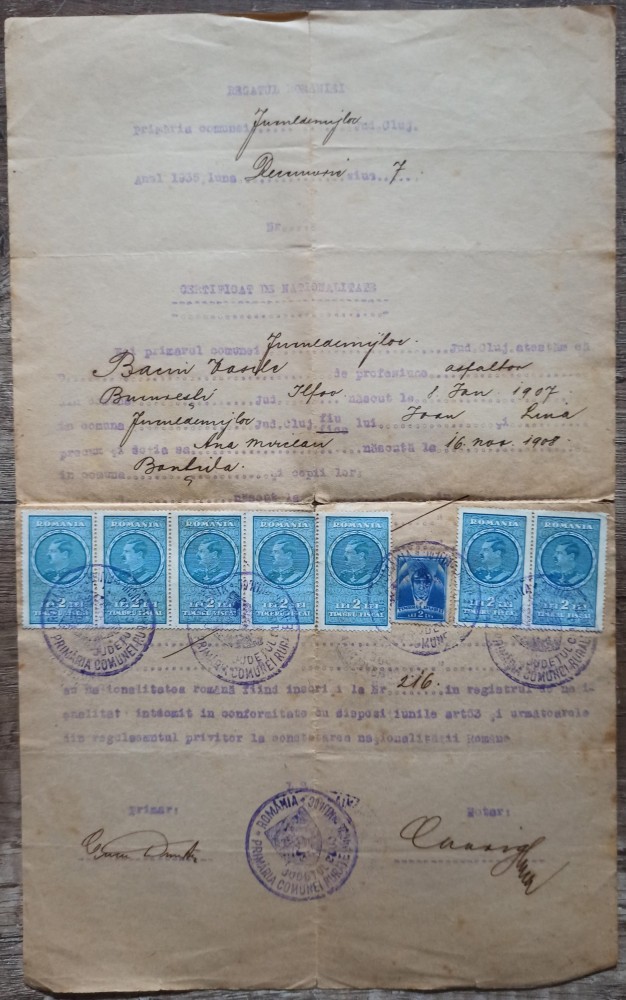 REGATUL ROMANIEI
Primăria comunei Jucul de mijloc Jud.Cluj.
Anul 1938, luna Decemvrie ziua 7
Nr.
CERTIFICAT DE NATIONALITATE
Noi primarul comunei Jucul de mijloc Jud.Cluj.atestăm că
D. Baciu Vasile de profesiune asfaltor
din Bucureşti jud. Ilfov născut la 8 Jan 1907
în comuna Jucul de mijloc Jud.Cluj. fiu lui Ioan şi Lina
fiica
precum şi soţia sa Ana născută la 16. nov. 1908.
în comuna Bonţida. şi copii lor:
născut la
ROMANIA ROMANIA ROMANIA ROMANIA ROMANIA ROMANIA ROMANIA
LEI 2 LEI LEI 2 LEI LEI 2 LEI LEI 2 LEI LEI 2 LEI LEI 2 LEI LEI 2 LEI LEI 2 LEI
TIMBRU FISCAL TIMBRU FISCAL TIMBRU FISCAL TIMBRU FISCAL TIMBRU FISCAL TIMBRU FISCAL TIMBRU FISCAL
JUDEŢUL
PRIMĂRIA COMUNEI RURALE
au naţionalitatea română fiind înscrişi la Nr. 216. în registrul de naţi
onalitate întocmit în conformitate cu dispoziţiunile art.53 şi următoarele
din regulamentul privitor la constatarea naţionalităţii Române
Primar: Notar:
ROMÂNIA
JUDEŢUL
PRIMĂRIA COMUNEI RURALE